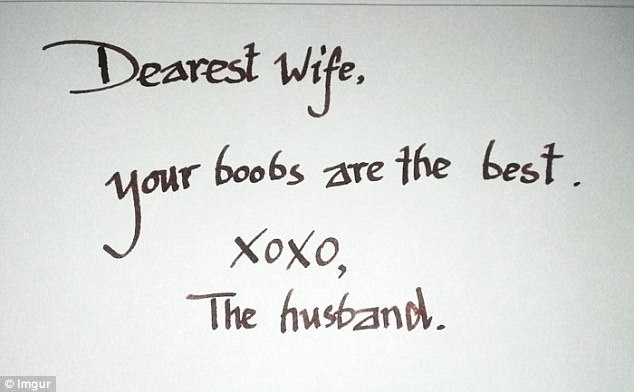 Dearest Wife,
your boobs are the best.
XOXO,
The husband.
© Imgur